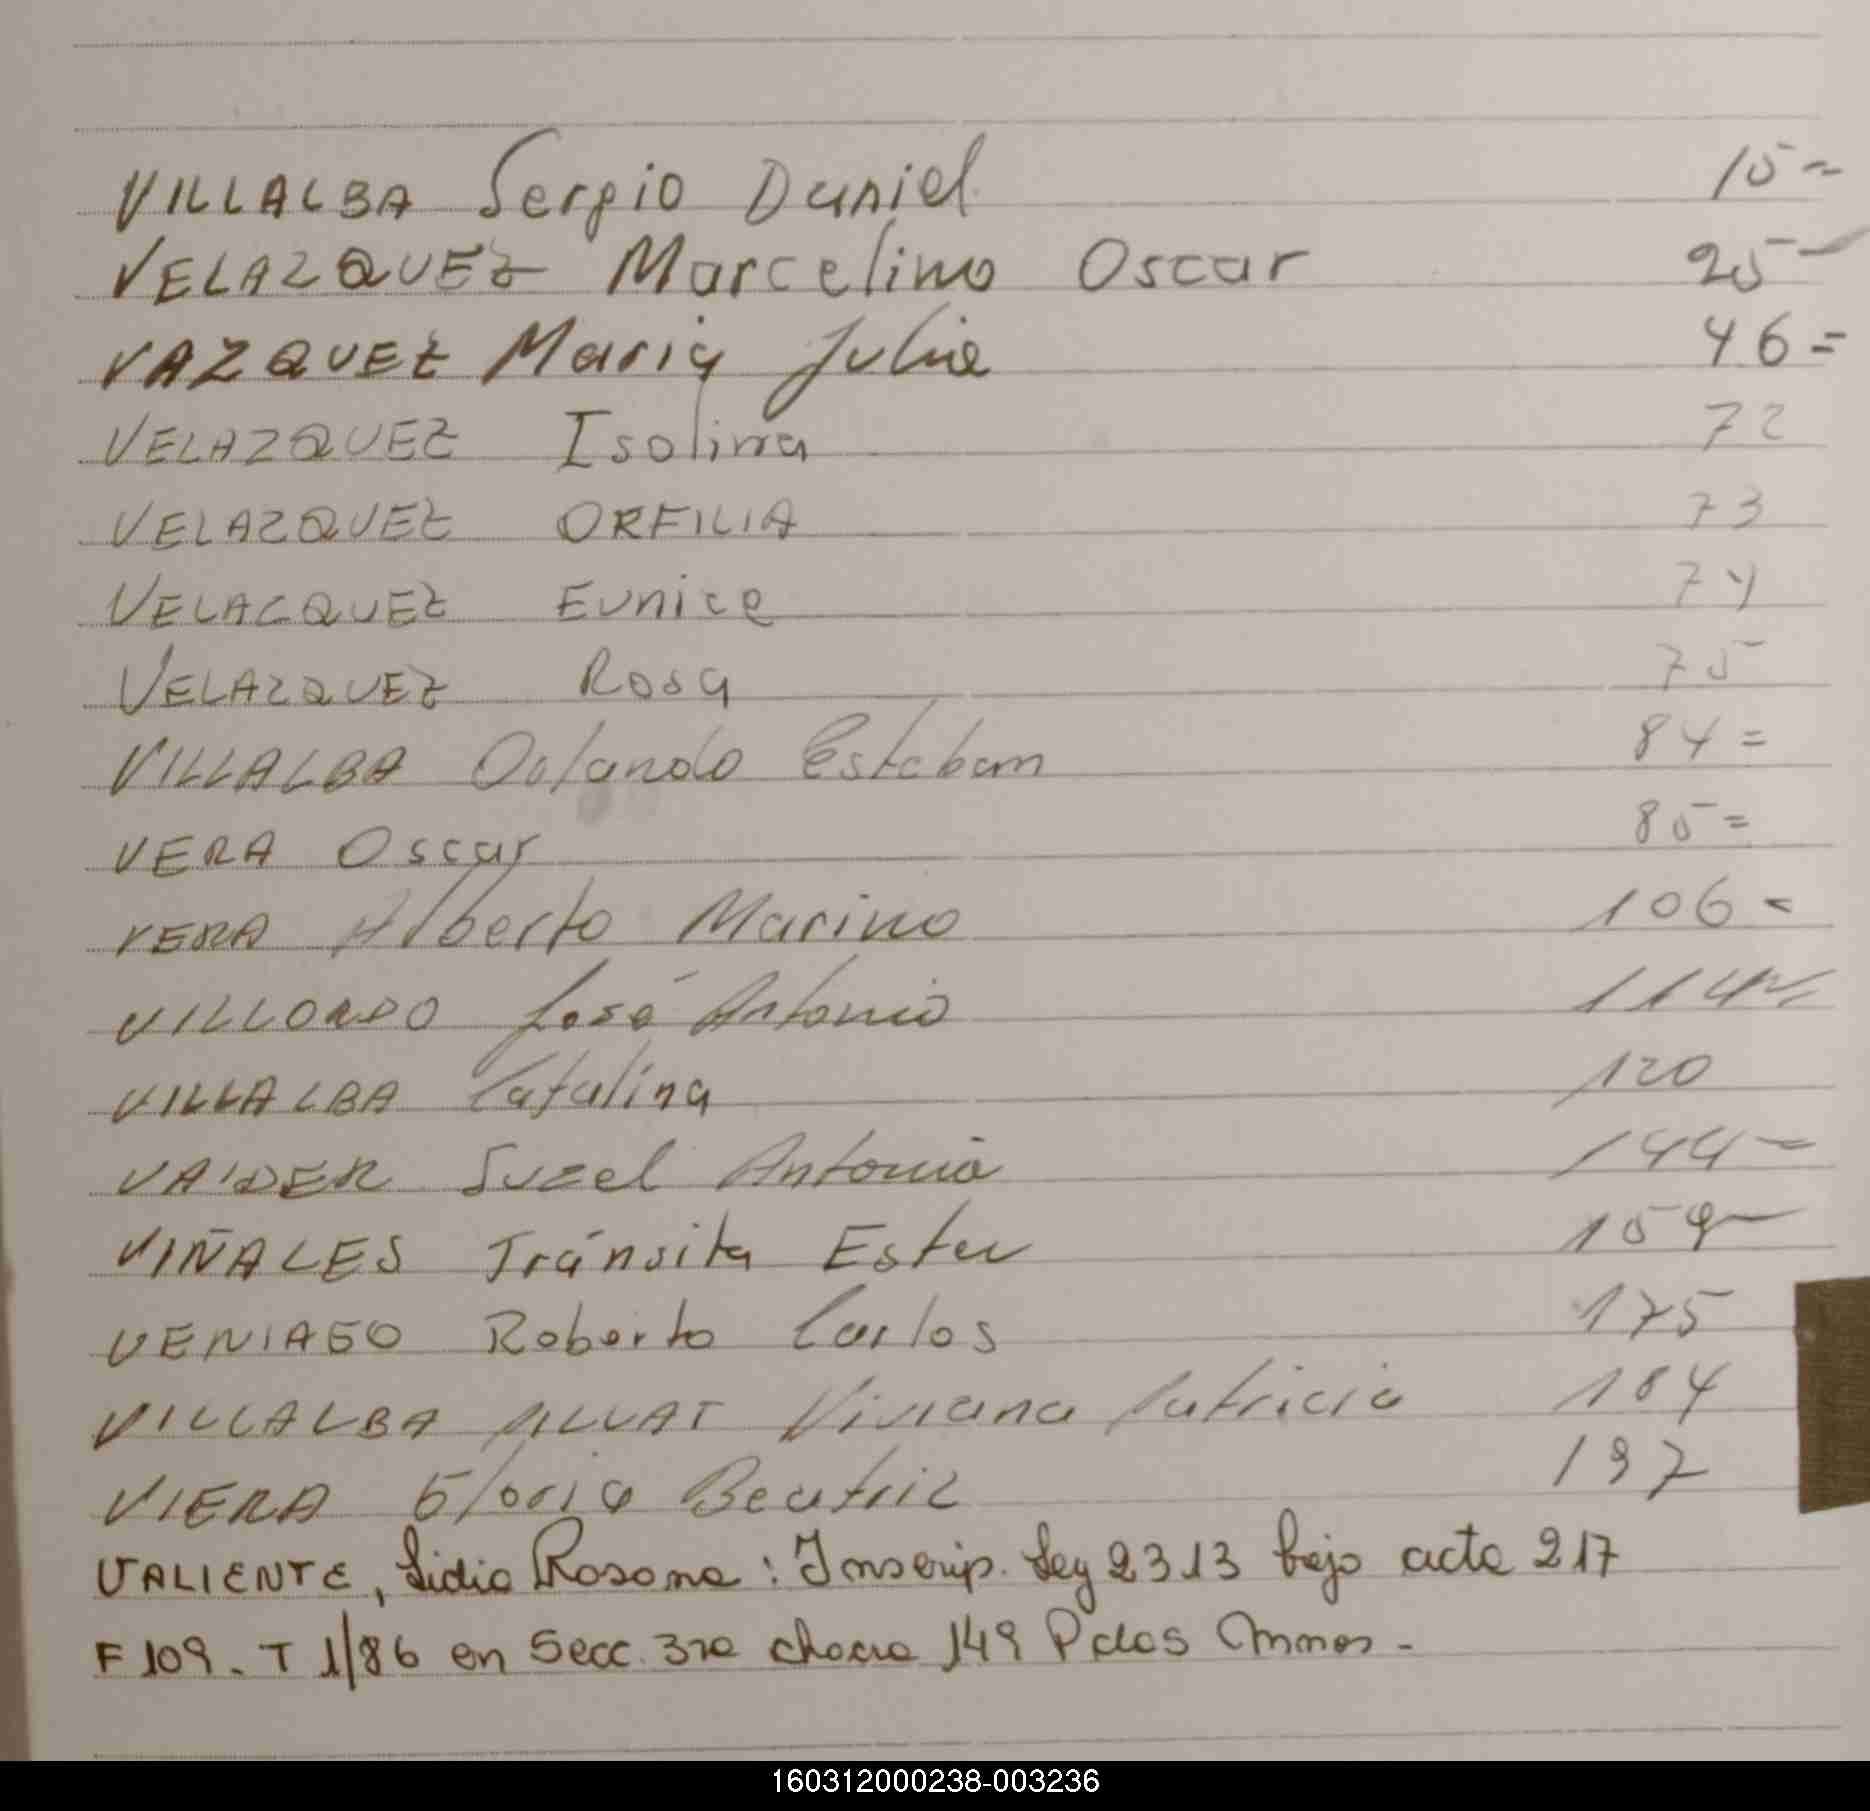 VILLALBA Sergio Daniel 15=
VELAZQUEZ Marcelino Oscar 25-
VAZQUEZ Maria Julia 46=
VELAZQUEZ Isolina 72
VELAZQUEZ ORFILIA 73
VELACQUEZ Eunice 74
VELAZQUEZ Rosa 75
VILLALBA Orlando Esteban 84=
VERA Oscar 85=
VERA Alberto Marino 106=
VILLORDO José Antonio 114
VILLALBA Catalina 120
Suzel Antonia 144=
VIÑALES Tránsita Ester 159-
VENIAGO Roberto Carlos 175
VILLALBA Viviana Patricia 184
VIERA Gloria Beatriz 197
VALIENTE, Lidia Rosana: Inscrip. Ley 2313 bajo acta 217
F 109. T 1/86 en Secc. 3ra chacra 149 Pdas Mnes.-
160312000238-003236